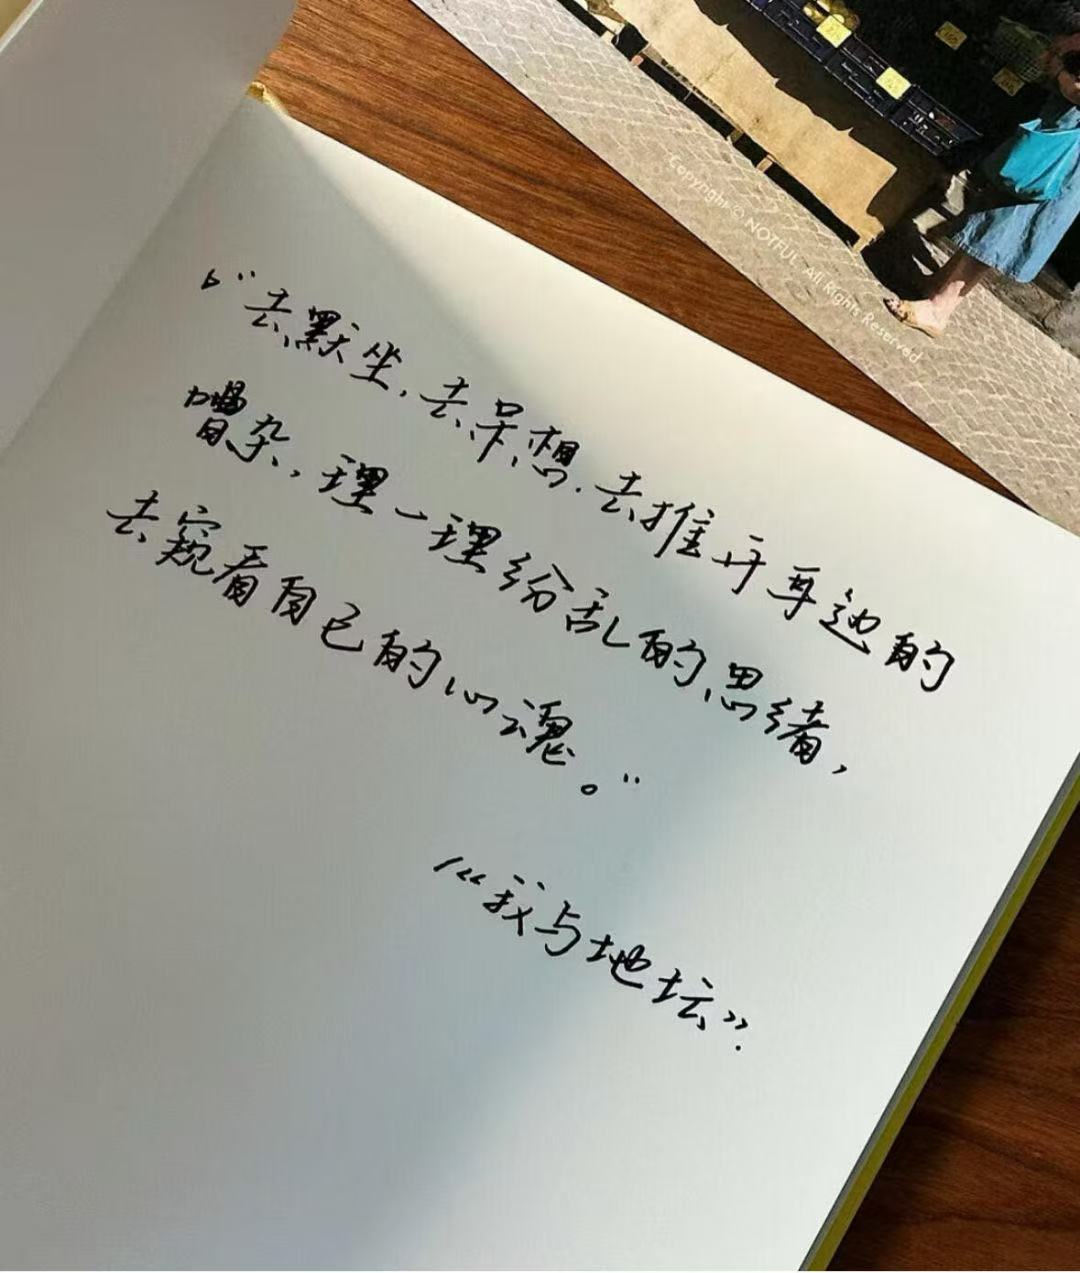 “去默坐，去呆想．去推开耳边的
嘈杂，理一理纷乱的思绪，
去窥看自己的心魂。”
/《我与地坛》.
Copyright © NOTFUL All Rights Reserved